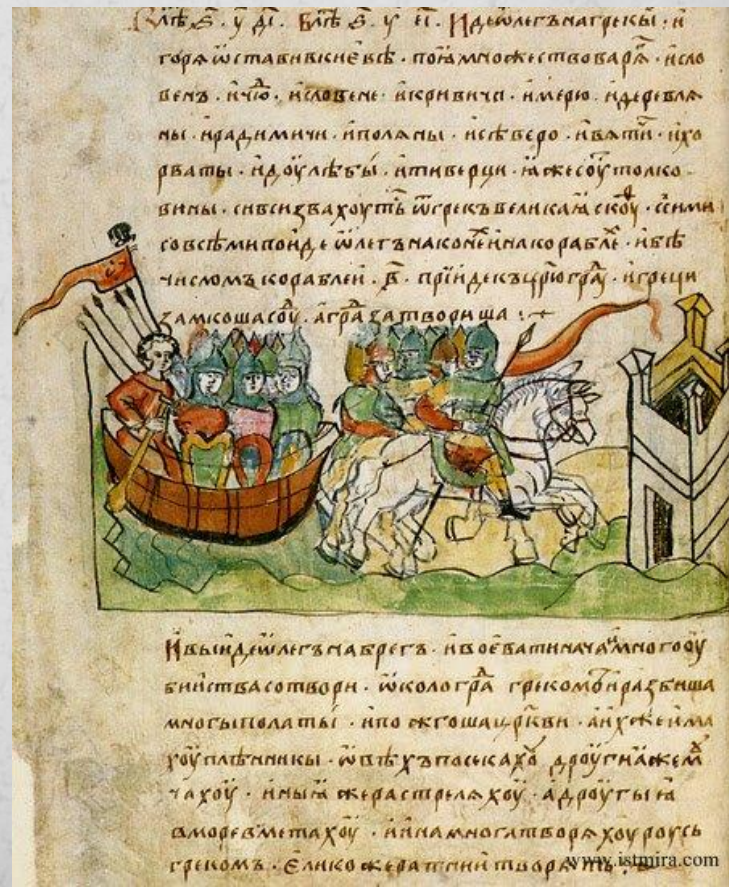 В лѣⷮ ҂ѕ҃. у҃ дı҃. В лѣⷮ ҂ѕ҃. у҃ еı҃. Иде ѡлегъ на грекы. и
горѧ ѡстави в киевѣ. поꙗ множество варѧⷢ. и сло
венъ. и чюⷣ. и словене. и кривичи. и мерю. и деревлѧ
ны. и радимичи. и полѧны. и сѣверо. и вѧтиⷱ. и хо
рваты. и доулѣбы. и тиверци. ꙗже соуⷮ толко
вины. си вси звахоутьⷭ ѿ грекъ великаꙗ скоуⷴ. с сими
со всѣми поиде ѡлегъ на конеⷯ и на кораблеⷯ. и бѣ
числомъ кораблеи. в҃. прїиде къ цр҃ю граⷣ. и греци
замкоша соуⷣ. а граⷣ затвориша :
И выиде ѡлегъ на брегъ. и воевати начаⷩ. и много оу
биства сотвори. ѡколо граⷣ грекоⷨ. и разбиша
многы полаты. и пожгоша цр҃кви. а иⷯ же има
хоу плѣнникы. ѡвѣхъ посекахоⷹ. дроугиꙗ же мⷹ
чахоу. иныꙗ же растрелѧхоу. а дроугыꙗ
в море вметахоу. и ина многа творѧхоу роусь
грекомъ. елико же ратнии творѧть.
www.istmira.com